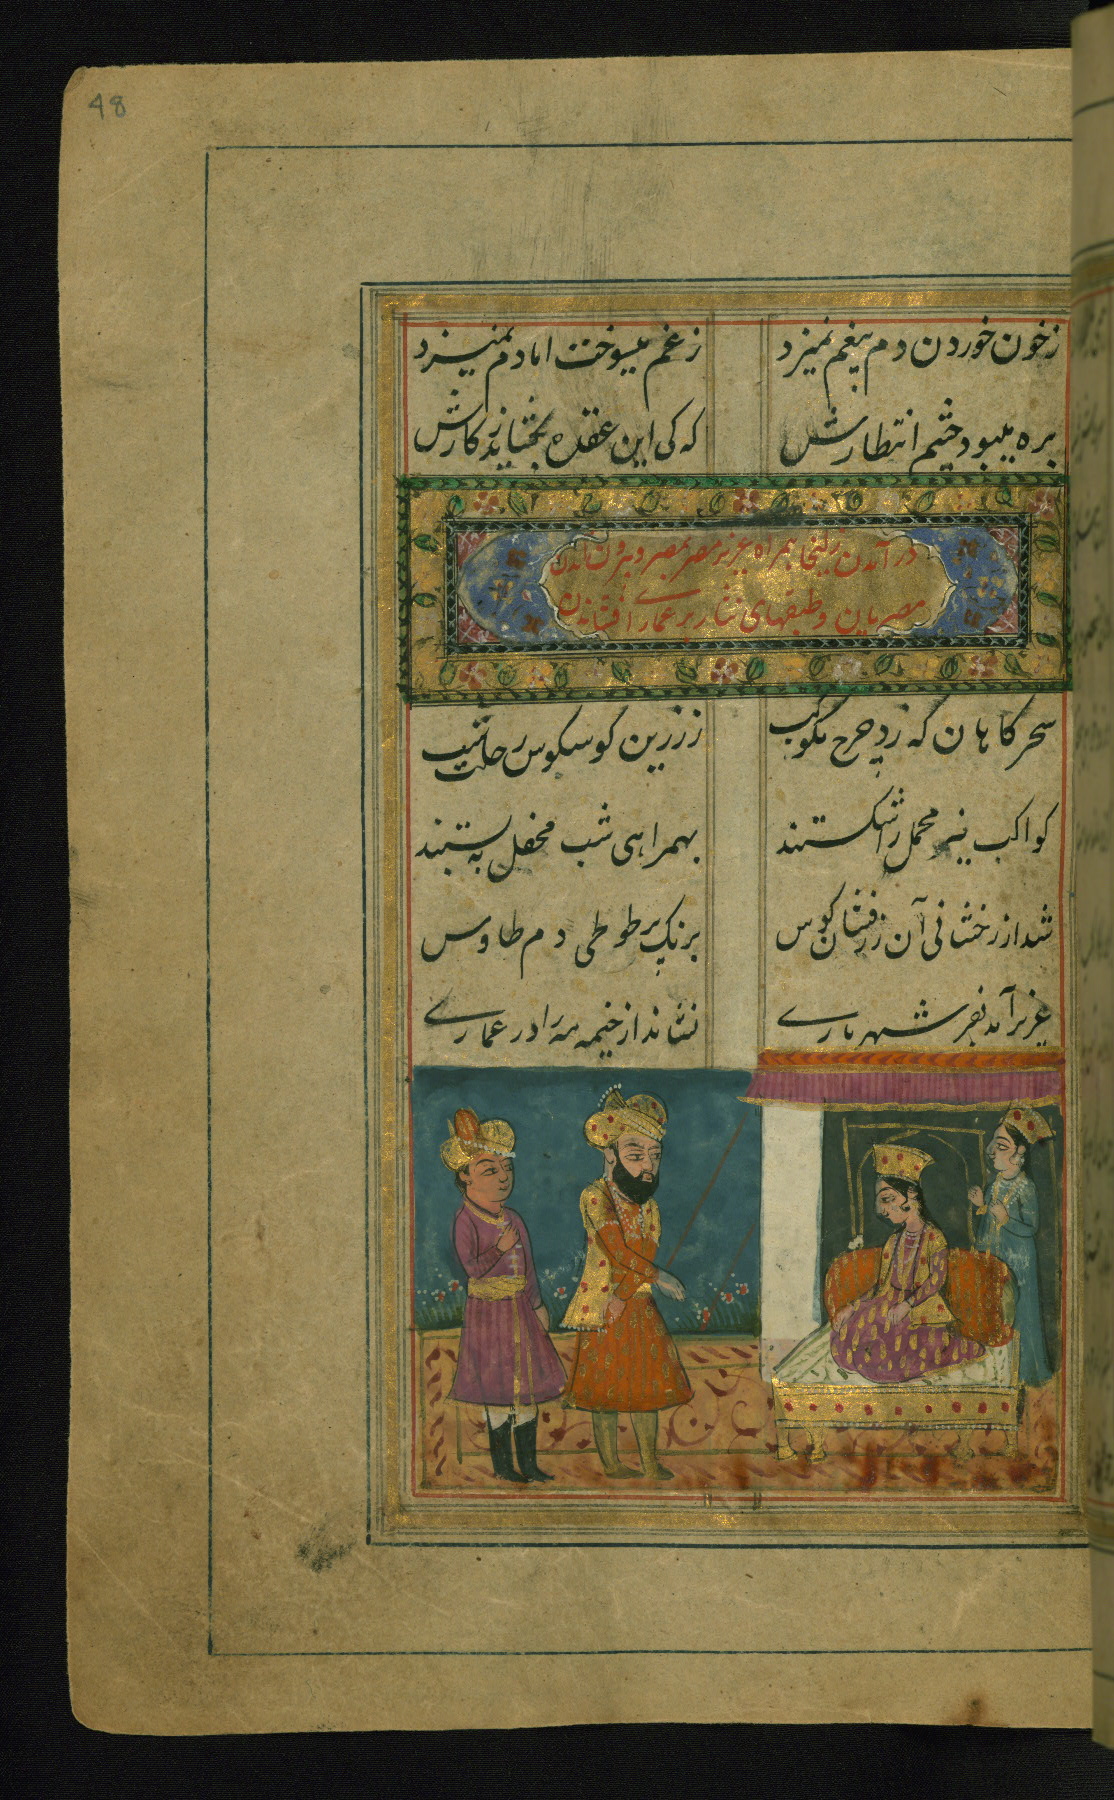 48
زخون خوردن دم بیغم نمیزد زغم میسوخت اما دم نمیزد
بره میبود چشم انتظارش که کی این عقده بگشاید زکارش
در آمدن زلیخا بهمراه عزیز مصر بمصر و بیرون آمدن
مصریان و طبقهای نثار بر عماری افشاندن
سحرکاهان که زد چرخ مکوکب ززرین کوس کوس رحلت شب
کواکب نیز محمل را شکستند بهمراهی شب محفل به بستند
شد از رخشانی آن زرفشان کوس برنک پر طوطی دم طاوس
عزیز آمد بفر شهریاری نشاند از خیمه مه را در عماری